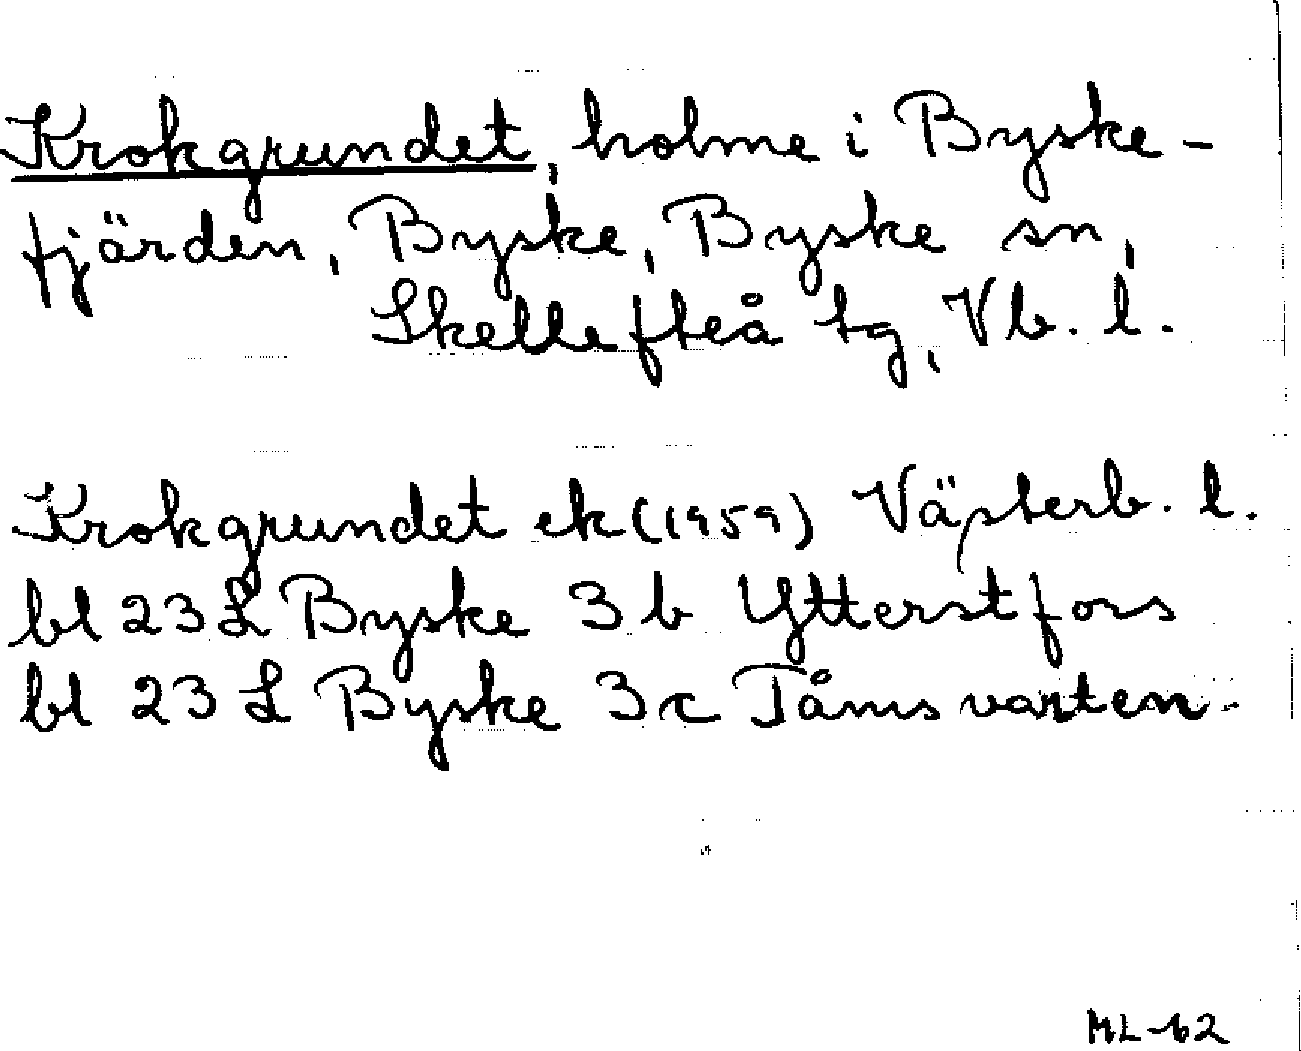 Krokgrundet, holme i Byske-
fjärden, Byske, Byske sn,
Skellefteå tg, Vb. l.
Krokgrundet ek (1959) Västerb. l.
bl 23 L Byske 3 b Ytterstfors
bl 23 L Byske 3c Tåmsvarten.
ML-62